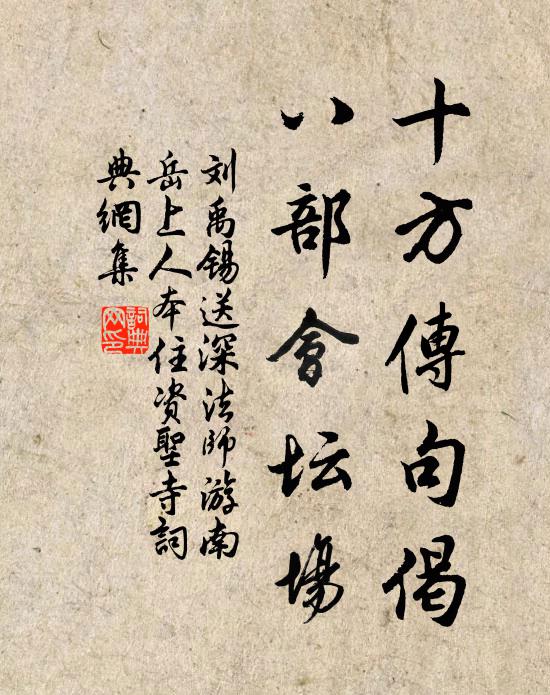 十方傳句偈
八部會坛場
刘禹锡送深法師游南
岳上人本住资聖寺詞
典網集
詞典
网印